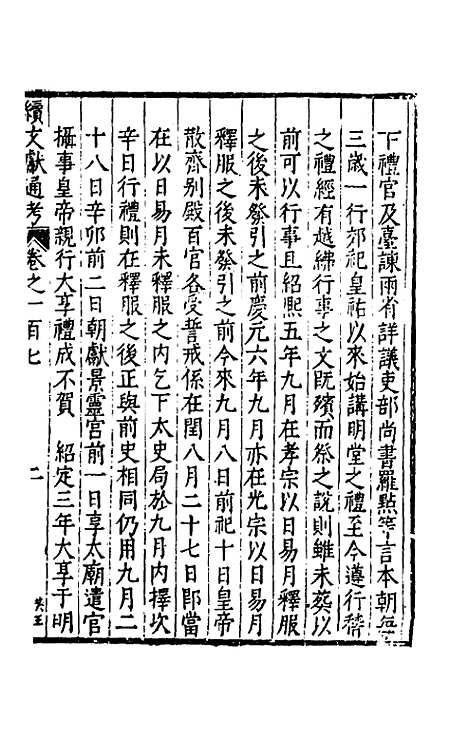 下禮官及臺諫兩省詳議吏部尚書羅點等言本朝每
三歲一行郊祀皇祐以來始講明堂之禮至今遵行稽
之禮經有越紼行事之文旣殯而祭之說則雖未葬以
前可以行事且紹熙五年九月在孝宗以日易月釋服
之後未發引之前慶元六年九月亦在光宗以日易月
釋服之後未發引之前今來九月八日前祀十日皇帝
散齋别殿百官各受誓戒係在閏八月二十七日卽當
在以日易月未釋服之内乞下太史局於九月内擇次
辛日行禮則在釋服之後正與前史相同仍用九月二
十八日辛卯前二日朝獻景靈宫前一日享太廟遣官
攝事皇帝親行大享禮成不賀 紹定三年大享于明
續文獻通考 卷之一百七 二